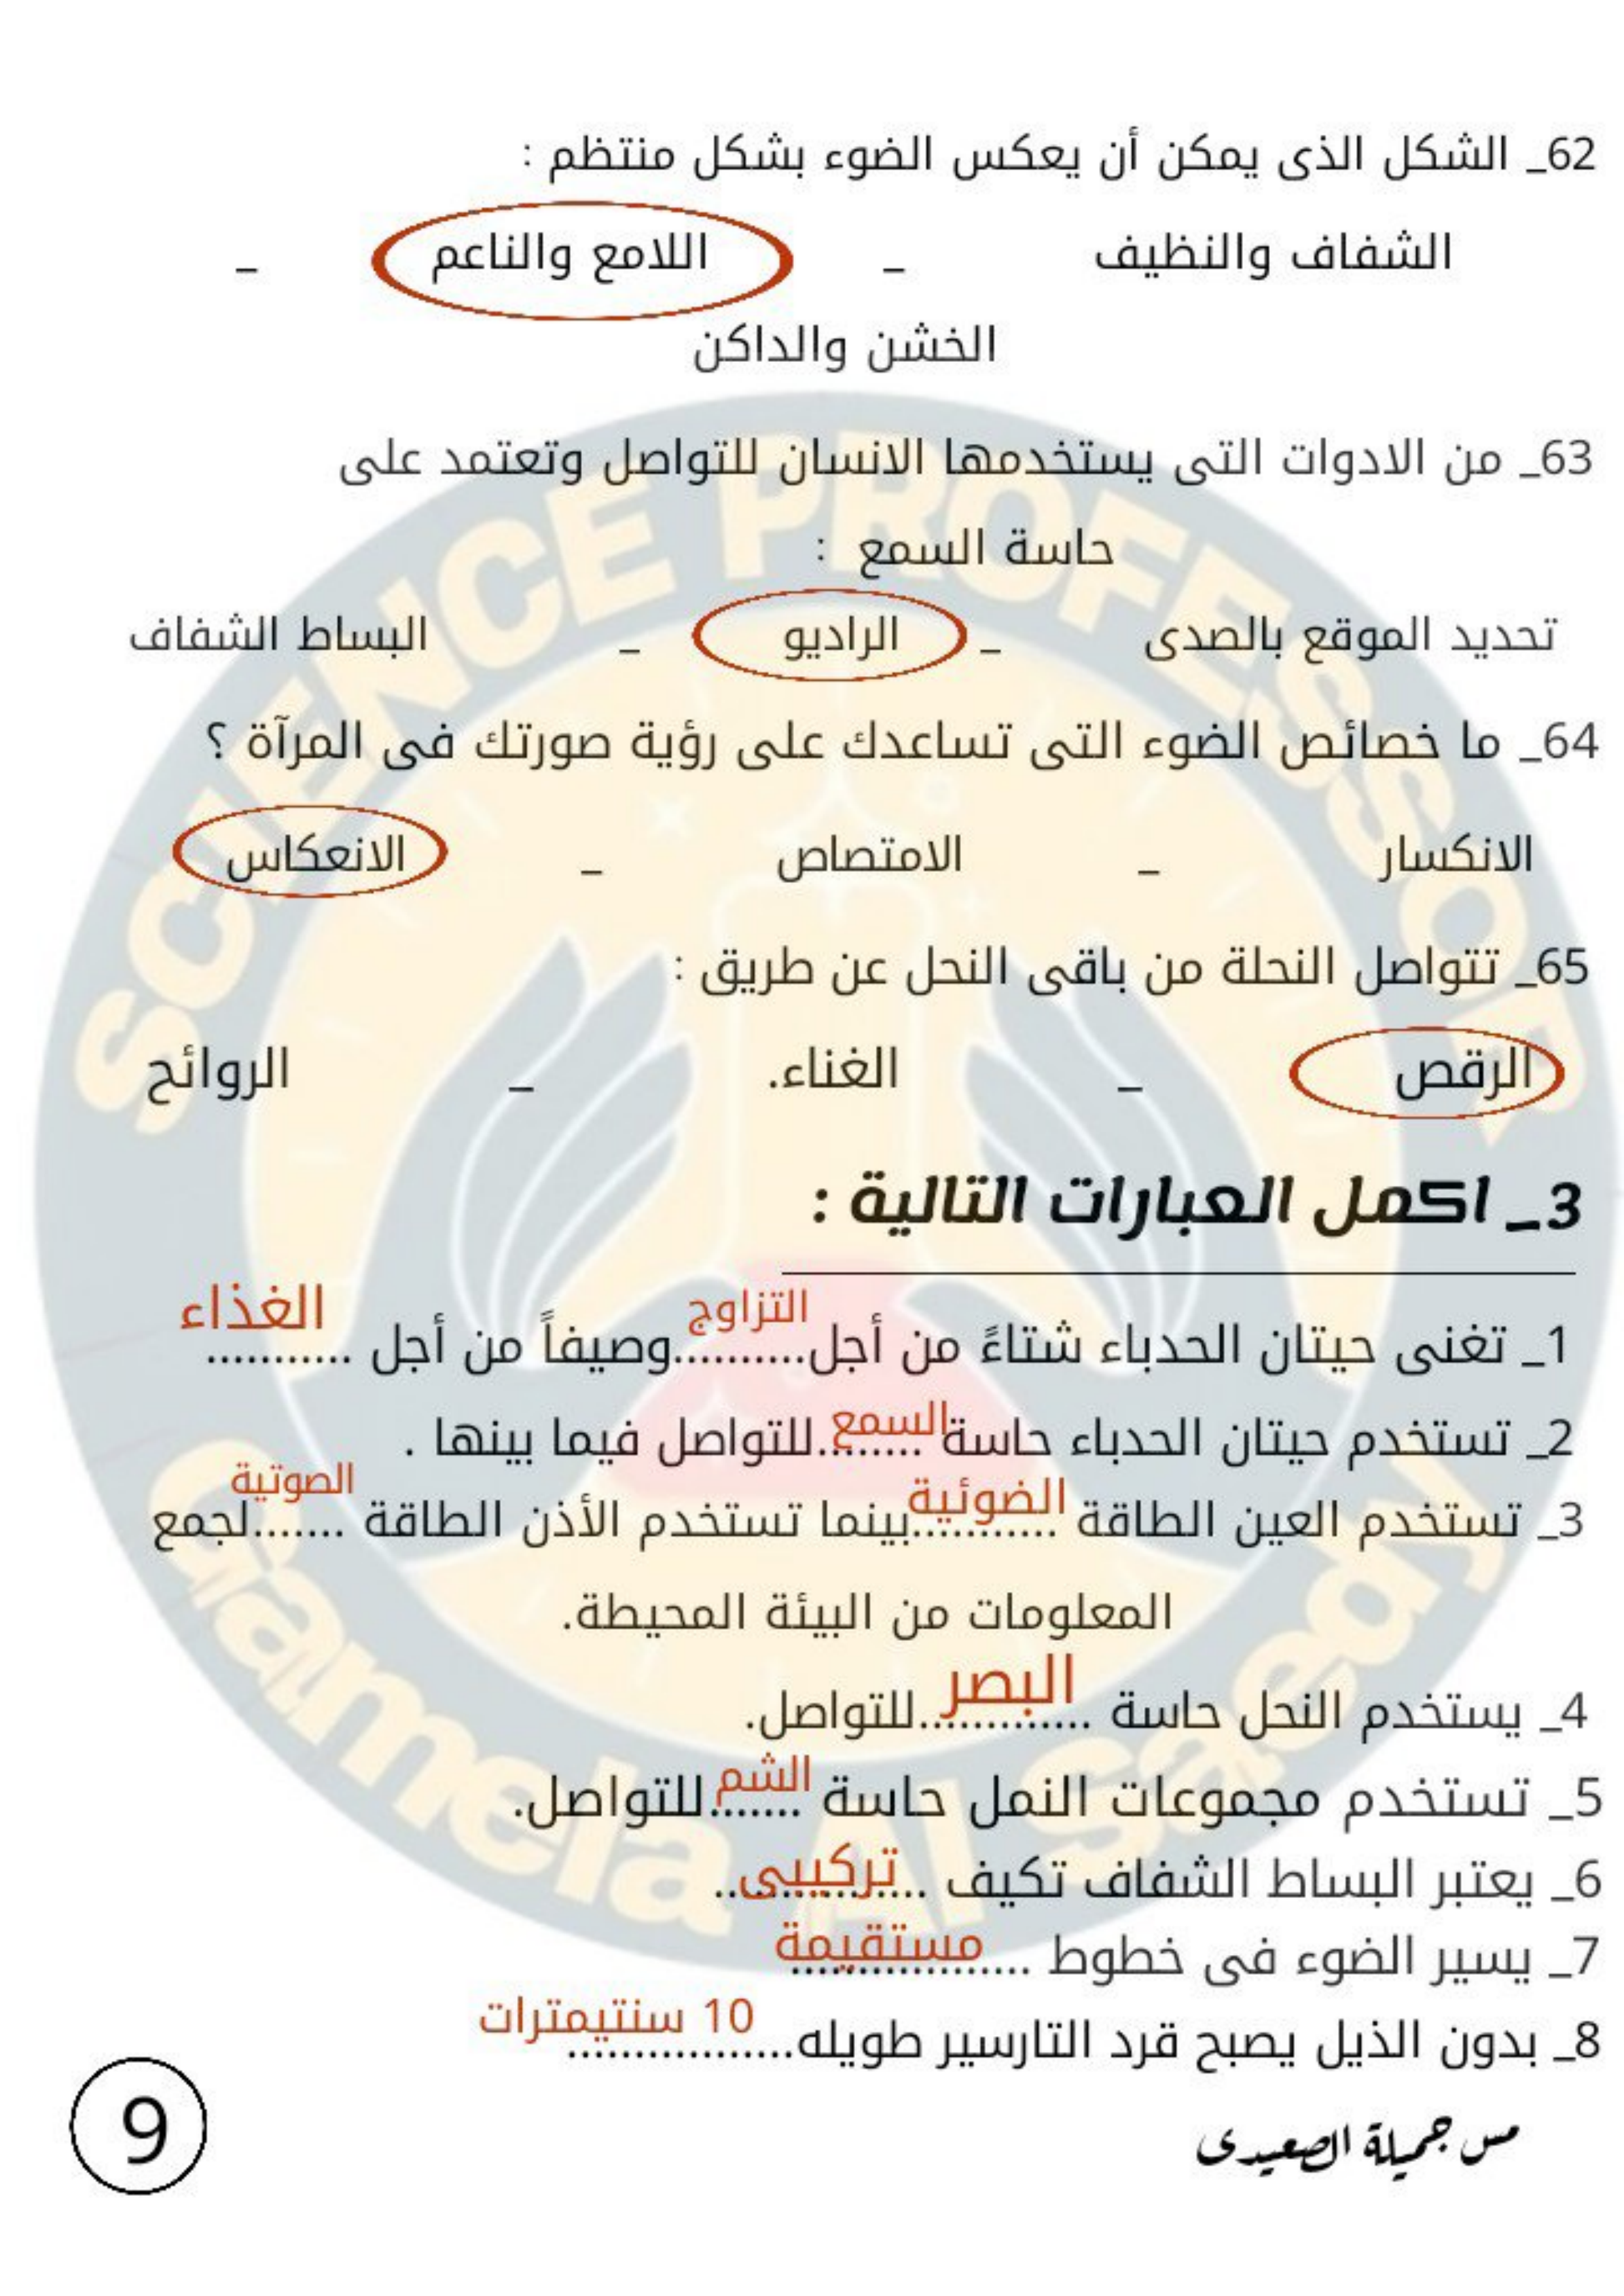 62_ الشكل الذى يمكن أن يعكس الضوء بشكل منتظم :
الشفاف والنظيف _ اللامع والناعم _
الخشن والداكن
63_ من الادوات التى يستخدمها الانسان للتواصل وتعتمد على
حاسة السمع :
تحديد الموقع بالصدى _ الراديو _ البساط الشفاف
64_ ما خصائص الضوء التى تساعدك على رؤية صورتك فى المرآة ؟
الانكسار _ الامتصاص _ الانعكاس
65_ تتواصل النحلة من باقى النحل عن طريق :
الرقص _ الغناء. _ الروائح
3_ اكمل العبارات التالية :
1_ تغنى حيتان الحدباء شتاءً من أجل..........التزاوج وصيفاً من أجل ........... الغذاء
2_ تستخدم حيتان الحدباء حاسة ........السمع للتواصل فيما بينها .
3_ تستخدم العين الطاقة ...........الضوئية بينما تستخدم الأذن الطاقة .......الصوتية لجمع
المعلومات من البيئة المحيطة.
4_ يستخدم النحل حاسة .............البصر للتواصل.
5_ تستخدم مجموعات النمل حاسة .......الشم للتواصل.
6_ يعتبر البساط الشفاف تكيف ................ تركيبى
7_ يسير الضوء فى خطوط .................. مستقيمة
8_ بدون الذيل يصبح قرد التارسير طويله................. 10 سنتيمترات
مس جميلة الصعيدى
9
SCIENCE PROFESSOR
Gamela Al Saedy